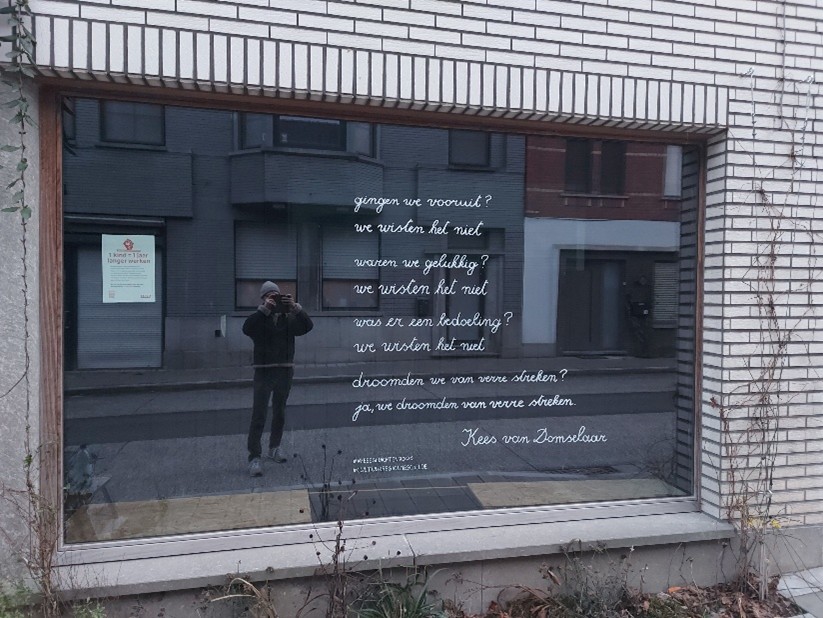 1 kind = 1 jaar
langer werken
gingen we vooruit?
we wisten het niet
waren we gelukkig?
we wisten het niet
was er een bedoeling?
we wisten het niet
droomden we van verre streken?
ja, we droomden van verre streken.
Kees van Domselaar